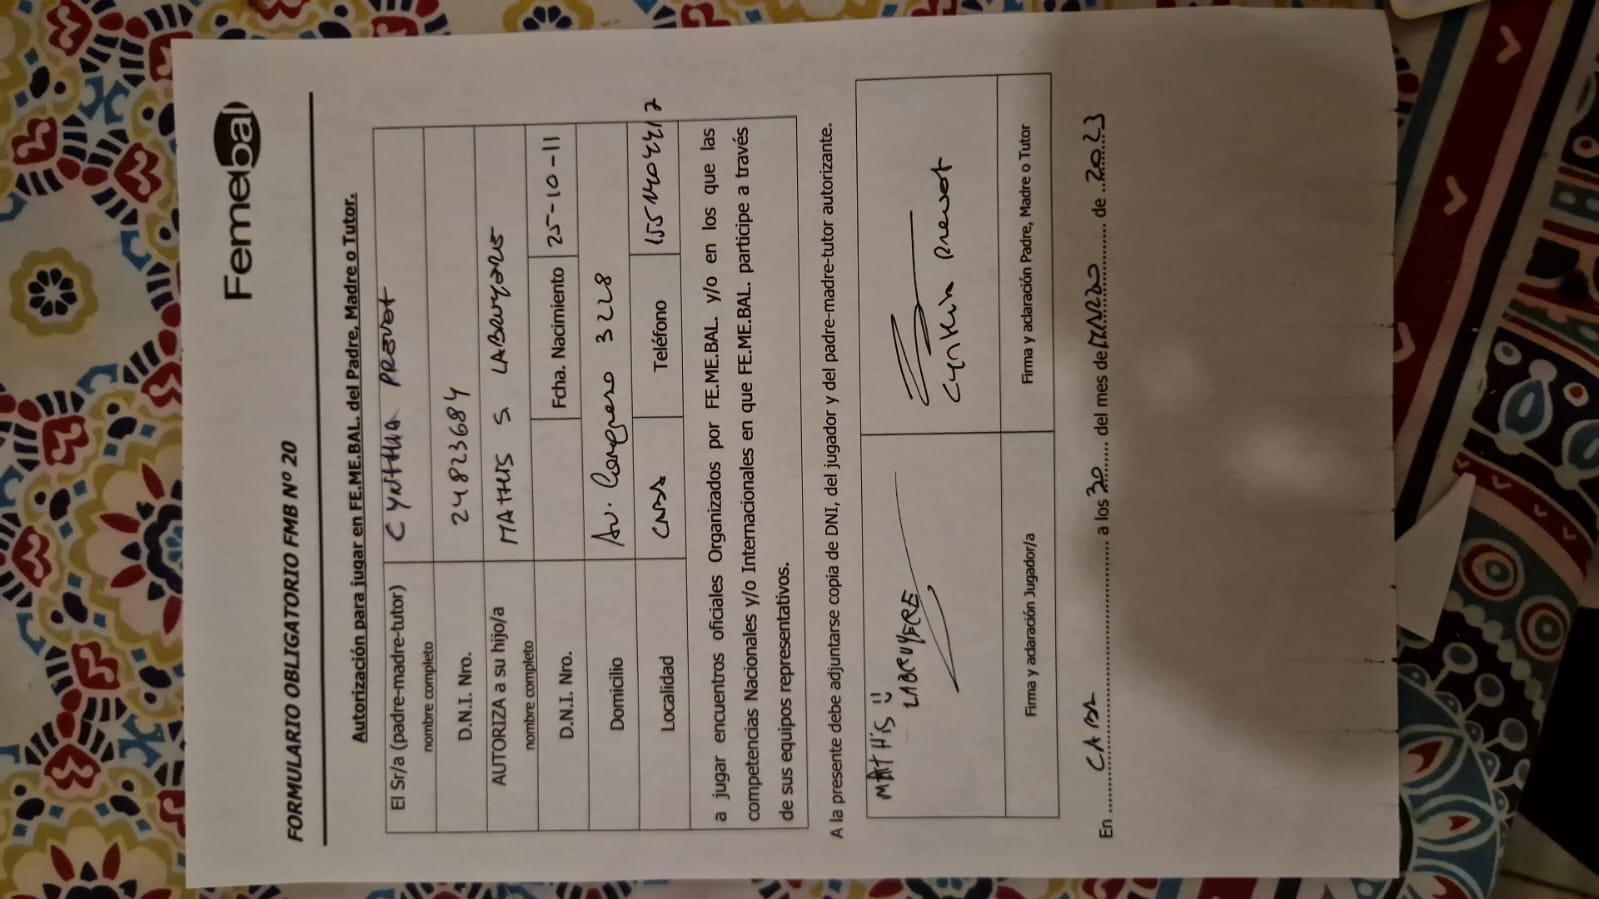 Femebal
FORMULARIO OBLIGATORIO FMB Nº 20
Autorización para jugar en FE.ME.BAL. del Padre, Madre o Tutor.
El Sr/a (padre-madre-tutor) CYNTHIA PREVOT
nombre completo
D.N.I. Nro. 24823684
AUTORIZA a su hijo/a MATHIS S LABRUYERE
nombre completo
D.N.I. Nro. Fcha. Nacimiento 25-10-11
Domicilio Av. Congreso 3228
Localidad CABA Teléfono
a jugar encuentros oficiales Organizados por FE.ME.BAL. y/o en los que las
competencias Nacionales y/o Internacionales en que FE.ME.BAL. participe a través
de sus equipos representativos.
A la presente debe adjuntarse copia de DNI, del jugador y del padre-madre-tutor autorizante.
MATHIS
LABRUYERE
Cynthia Prevot
Firma y aclaración Jugador/a Firma y aclaración Padre, Madre o Tutor
En CABA a los 30 del mes de MARZO de 2023